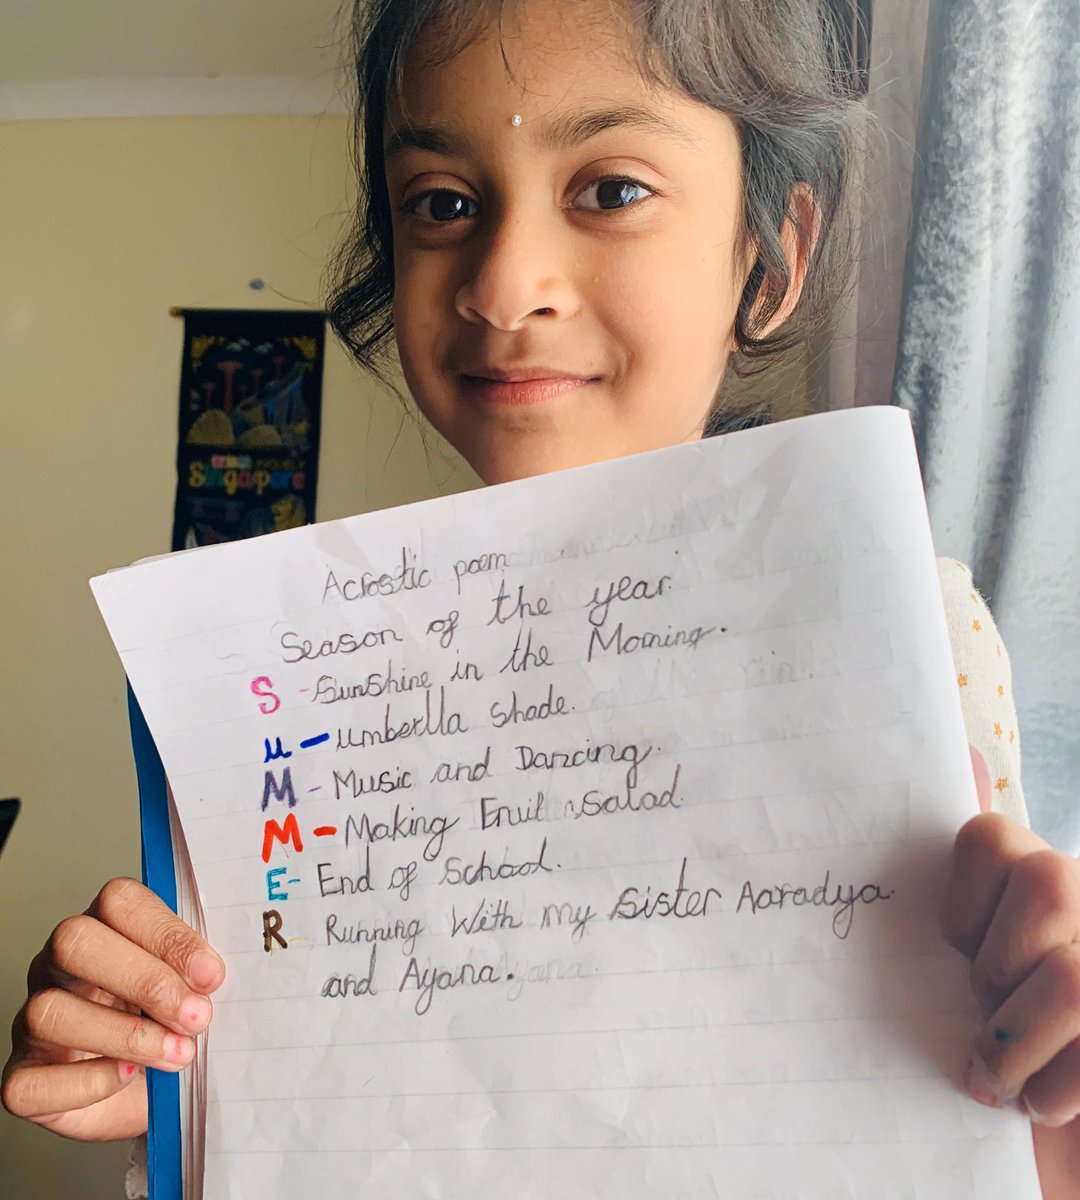 Singapore
Acrostic poem
Season of the year.
S - Sunshine in the Morning.
u - umberlla shade.
M - Music and Dancing.
M - Making Fruit salad
E - End of School.
R Running With my Sister Aaradya.
and Ayana.